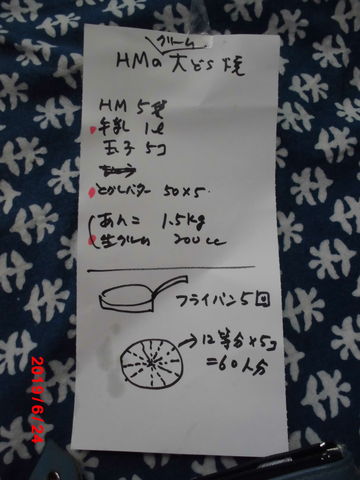 クリーム
HMの大どら焼
HM 5袋
牛乳 1ℓ
玉子 5コ
とかしバター 50×5
あんこ 1.5kg
生クリーム 200cc
フライパン5回
12等分×5コ
=60人分
2019/6/24